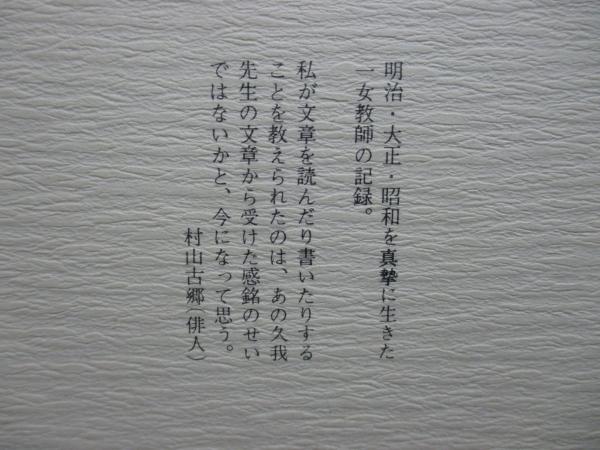 明治・大正・昭和を真摯に生きた
一女教師の記録。
私が文章を読んだり書いたりする
ことを教えられたのは、あの久我
先生の文章から受けた感銘のせい
ではないかと、今になって思う。
村山古郷（俳人）